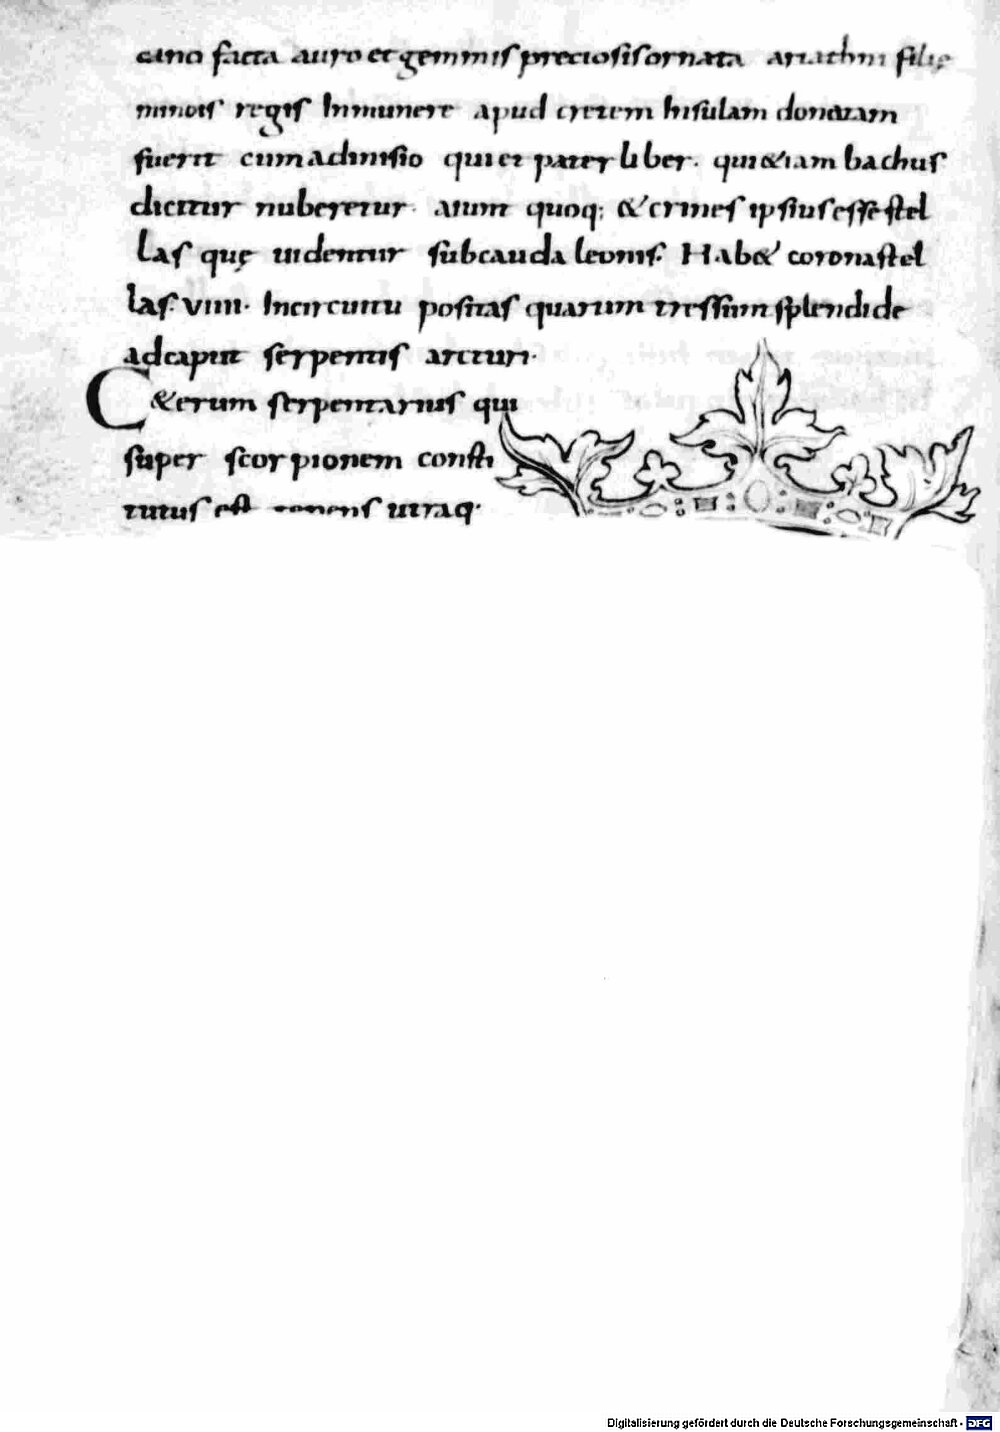 cano facta auro et gemmis preciosis ornata ariathni filię
minois regis Inmunere apud cretem Insulam donatam
fuerit cum adinisio qui et pater liber. qui &iam bachus
dicitur nuberetur. aiunt quoq; & crines ipsius esse stel
las quę uidentur sub cauda leonis. Hab& corona stel
las. VIIII. Incircuitu positas quarum tres sunt splendide
ad caput serpentis arcturi.
C&erum serpentarius qui
super scorpionem consti
tutus est tenens utraq.
Digitalisierung gefördert durch die Deutsche Forschungsgemeinschaft - DFG